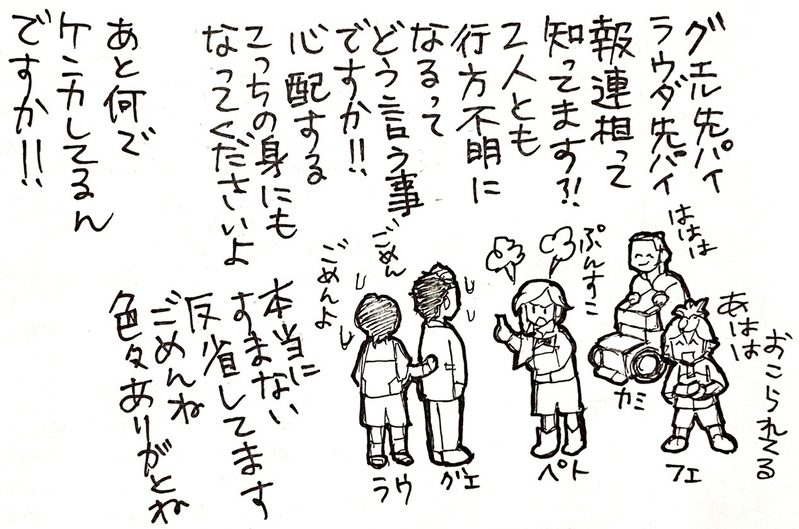 グエル先パイ
ラウダ先パイ
報連相って
知ってます?!
2人とも
行方不明に
なるって
どう言う事
ですか!!
心配する
こっちの身にも
なってくださいよ
あと何で
ケンカしてるん
ですか!!
ははは
あはは
おこられてる
ぷんすこ
ごめん
ごめんよ
本当に
すまない
反省してます
ごめんね
色々ありがとね
フェ
カミ
ペト
グエ
ラウ